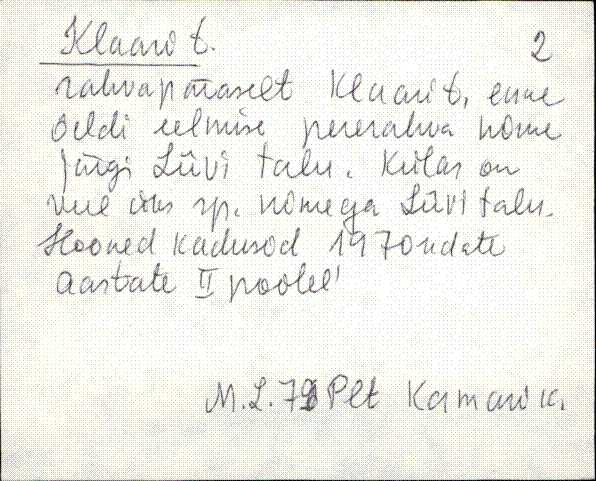 Klaari t. 2
rahvapäraselt Klaari t, enne
öeldi eelmise pererahva nime
järgi Liivi talu. Külas on
veel üks sp. nimega Liivi talu.
Hooned kadusid 1970ndate
aastate II poolel
M.L. 79 Plt Kamari k.